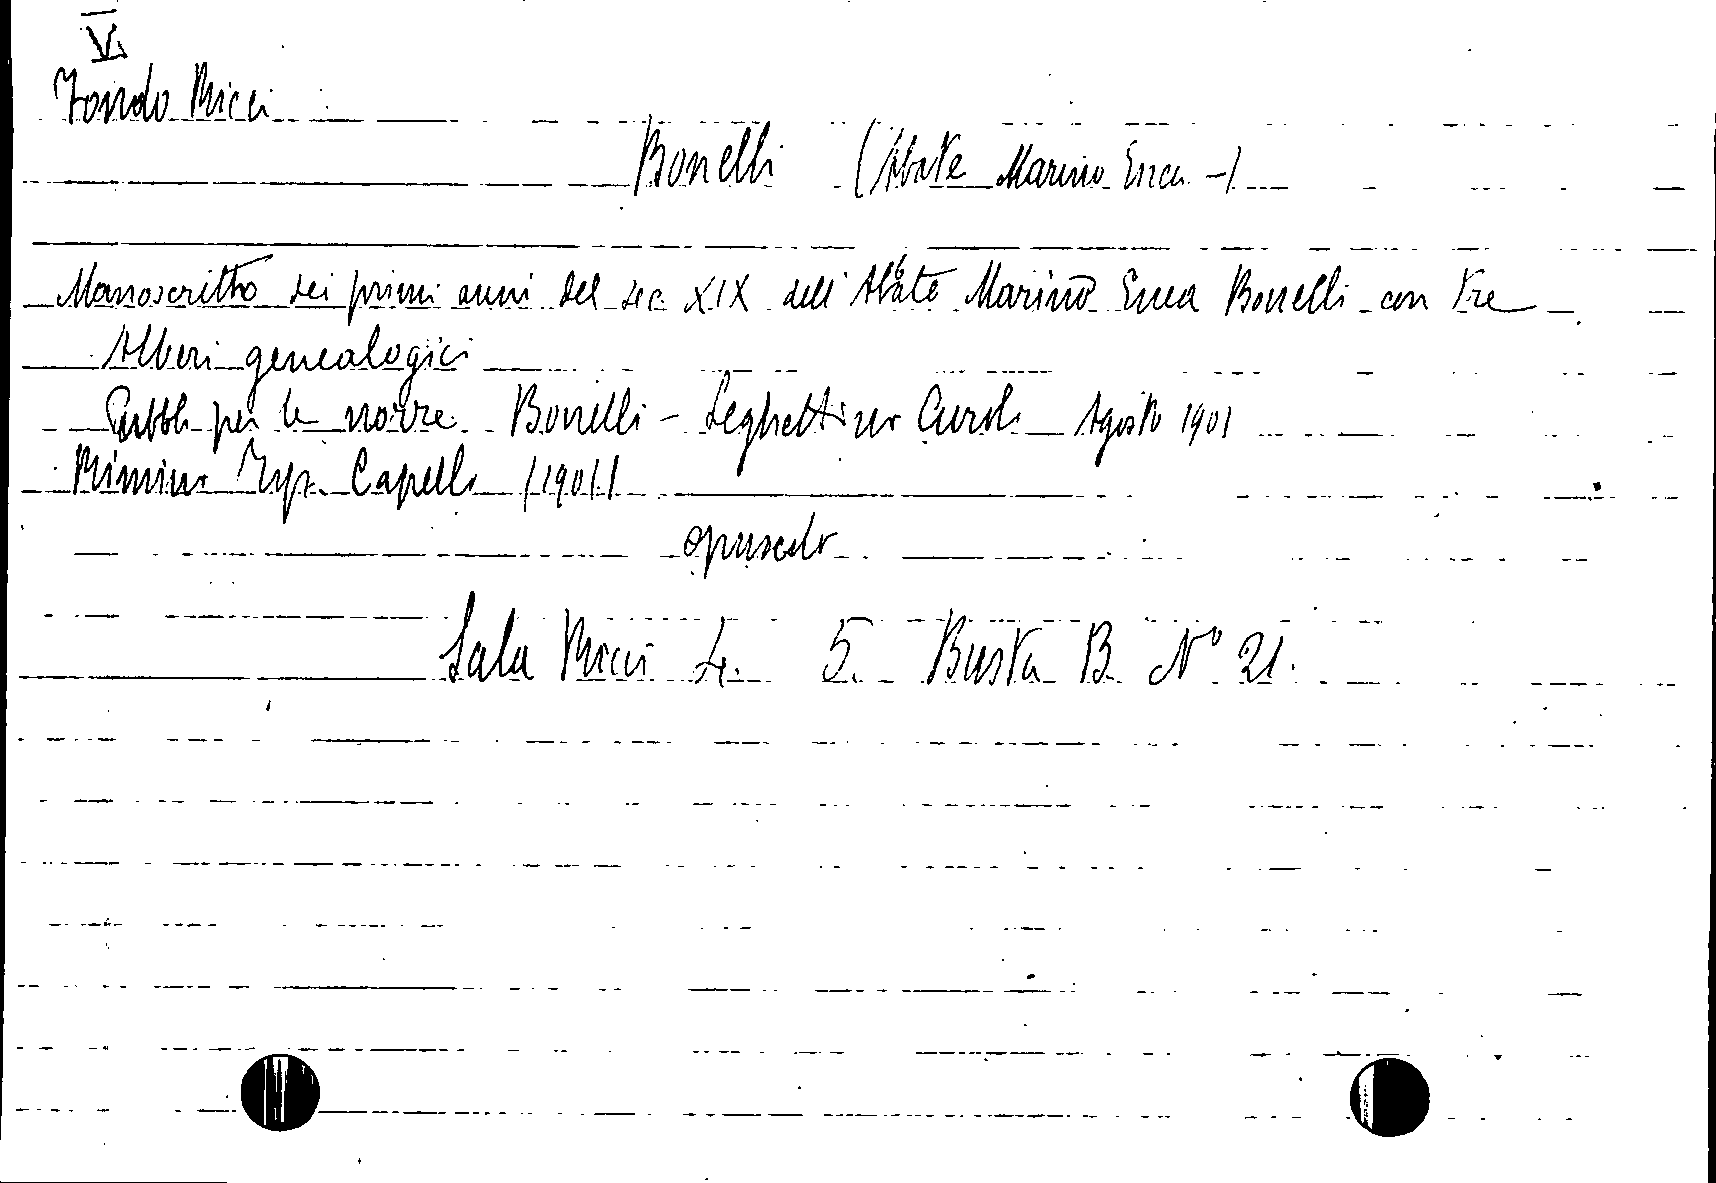 V.
Fondo Ricci
Bonelli (Abate Marino Enea -)
Manoscritto dei primi anni del sec. XIX dell'Abate Marino Enea Bonelli con tre
Alberi genealogici
Pubbl. per le nozze Bonelli - Agosto 1901
Rimini Tip. Capelli (1901)
opuscolo
Sala Ricci 4. 5. Busta B. N° 21.